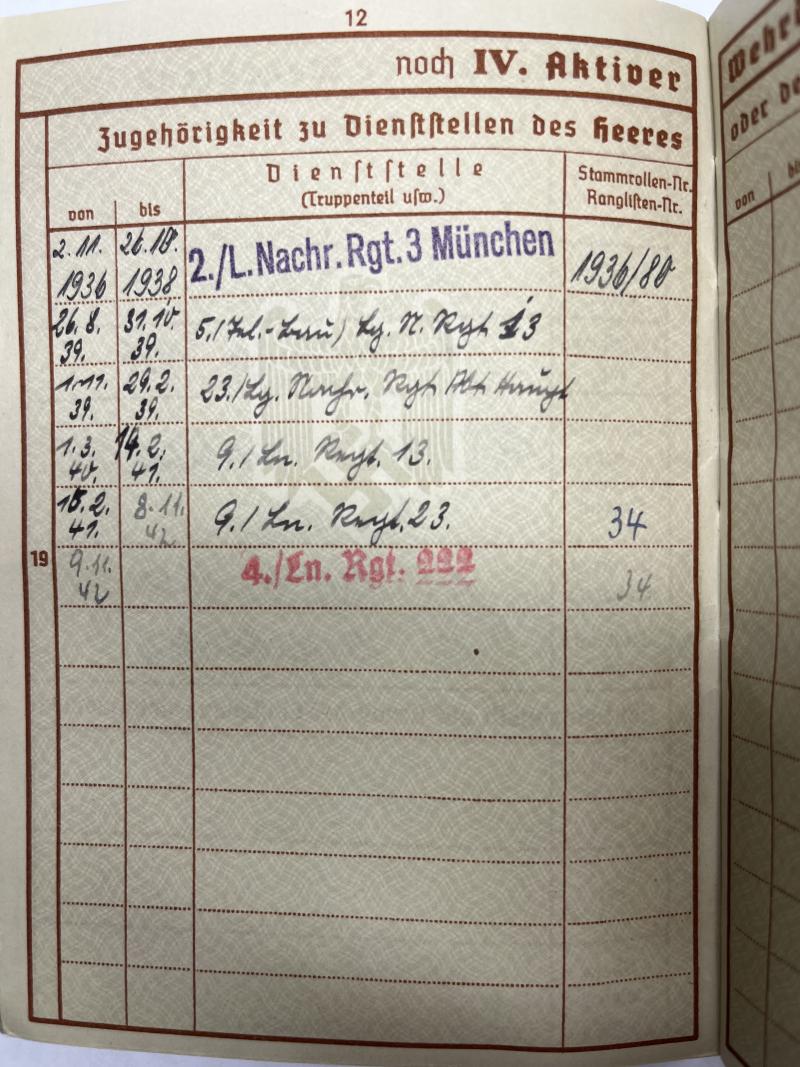 12
noch IV. Aktiver
Zugehörigkeit zu Dienststellen des Heeres
von
bis
Dienststelle
(Truppenteil usw.)
Stammrollen-Nr.
Ranglisten-Nr.
2.11. 1936
26.10. 1938
2./L.Nachr.Rgt.3 München
1936/80
26.8. 39.
31.10. 39.
5./(Tel.-Bau) Lg. N. Rgt 13
1.11. 39.
29.2. 39.
23./Lg. Nachr. Rgt
1.3. 40.
14.2. 41.
9./Ln. Regt. 13.
15.2. 41.
8.11. 42
9./Ln. Regt. 23.
34
19
9.11. 42
4./Ln. Rgt. 222
34
Wehr
oder de
von
bi